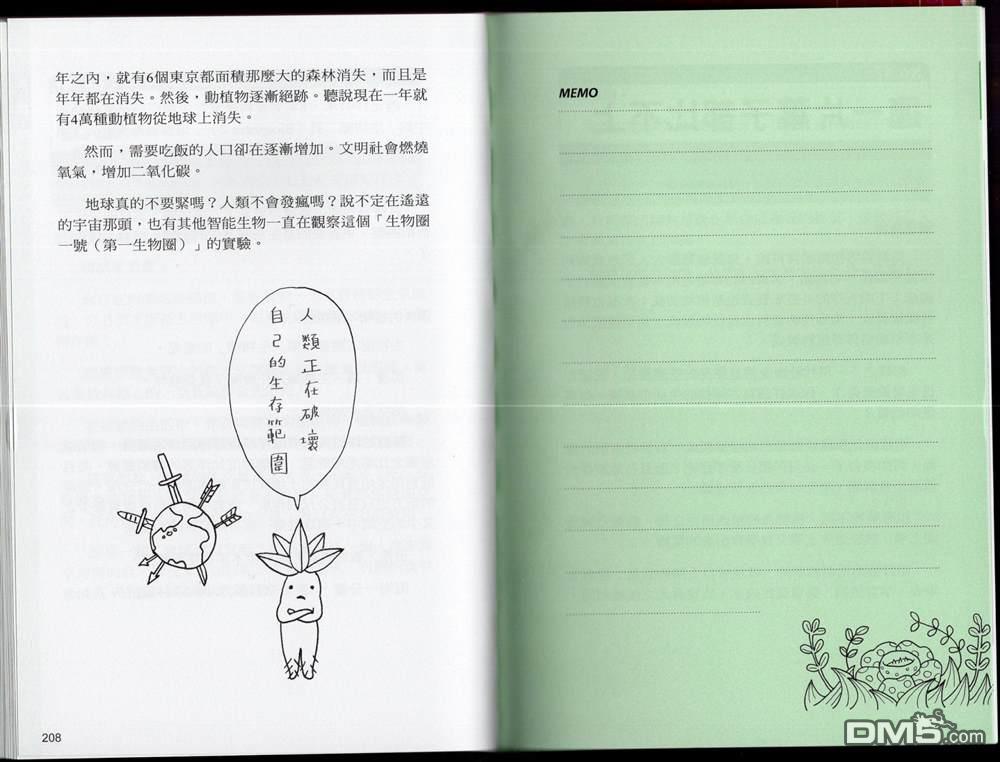 年之內，就有6個東京都面積那麼大的森林消失，而且是
年年都在消失。然後，動植物逐漸絕跡。聽說現在一年就
有4萬種動植物從地球上消失。
然而，需要吃飯的人口卻在逐漸增加。文明社會燃燒
氧氣，增加二氧化碳。
地球真的不要緊嗎？人類不會發瘋嗎？說不定在遙遠
的宇宙那頭，也有其他智能生物一直在觀察這個「生物圈
一號（第一生物圈）」的實驗。
人類正在破壞
自己的生存範圍
208
MEMO
DM5.com